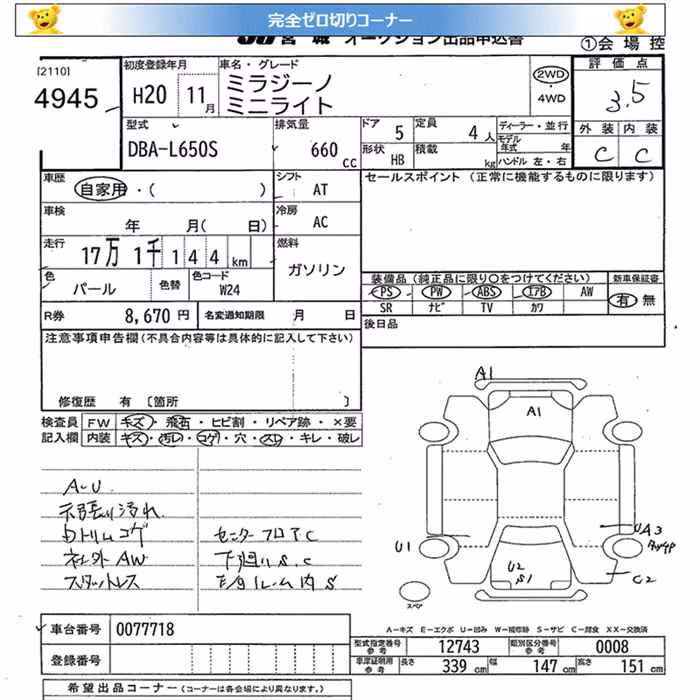 完全ゼロ切りコーナー
宮城 オークション出品申込書
①会場控
[2110]
4945
初度登録年月
H20 11月
車名・グレード
ミラジーノ
ミニライト
2WD
・
4WD
評価点
3.5
型式
DBA-L650S
排気量
660 cc
ドア 5
定員 4人
形状 HB
積載 kg
ディーラー・並行
モデル年式 年
ハンドル 左・右
外装 内装
C C
車歴
自家用・( )
シフト AT
セールスポイント (正常に機能するものに限ります)
車検
年 月( 日)
冷房 AC
走行
17万 1千 1 4 4 km
燃料
ガソリン
色
パール
色替
色コード
W24
装備品 (純正品に限り○をつけてください)
新車保証書
PS PW ABS エアB AW
有 無
SR ナビ TV カワ
R券 8,670円
名変通知期限 月 日
後日品
注意事項申告欄(不具合内容等は具体的に記入して下さい)
修復歴 有 〔箇所 〕
検査員 FW キズ・飛石・ヒビ割・リペア跡・×要
記入欄 内装 キズ・汚レ・コゲ・穴・スレ・キレ・破レ
A-U
天張り汚れ
内トリムコゲ
センターフロアC
社外AW
下廻りS.C
スタットレス
A1
A1
U1
UA3
U2
S1
C2
スペア
A-キズ E-エクボ U-凹み W-補修跡 S-サビ C-腐食 XX-交換済
車台番号 0077718
登録番号
型式指定番号 参考 12743
類別区分番号 参考 0008
車庫証明用 参考 長さ 339cm 幅 147cm 高さ 151cm
希望出品コーナー (コーナーは各会場により異なります。)